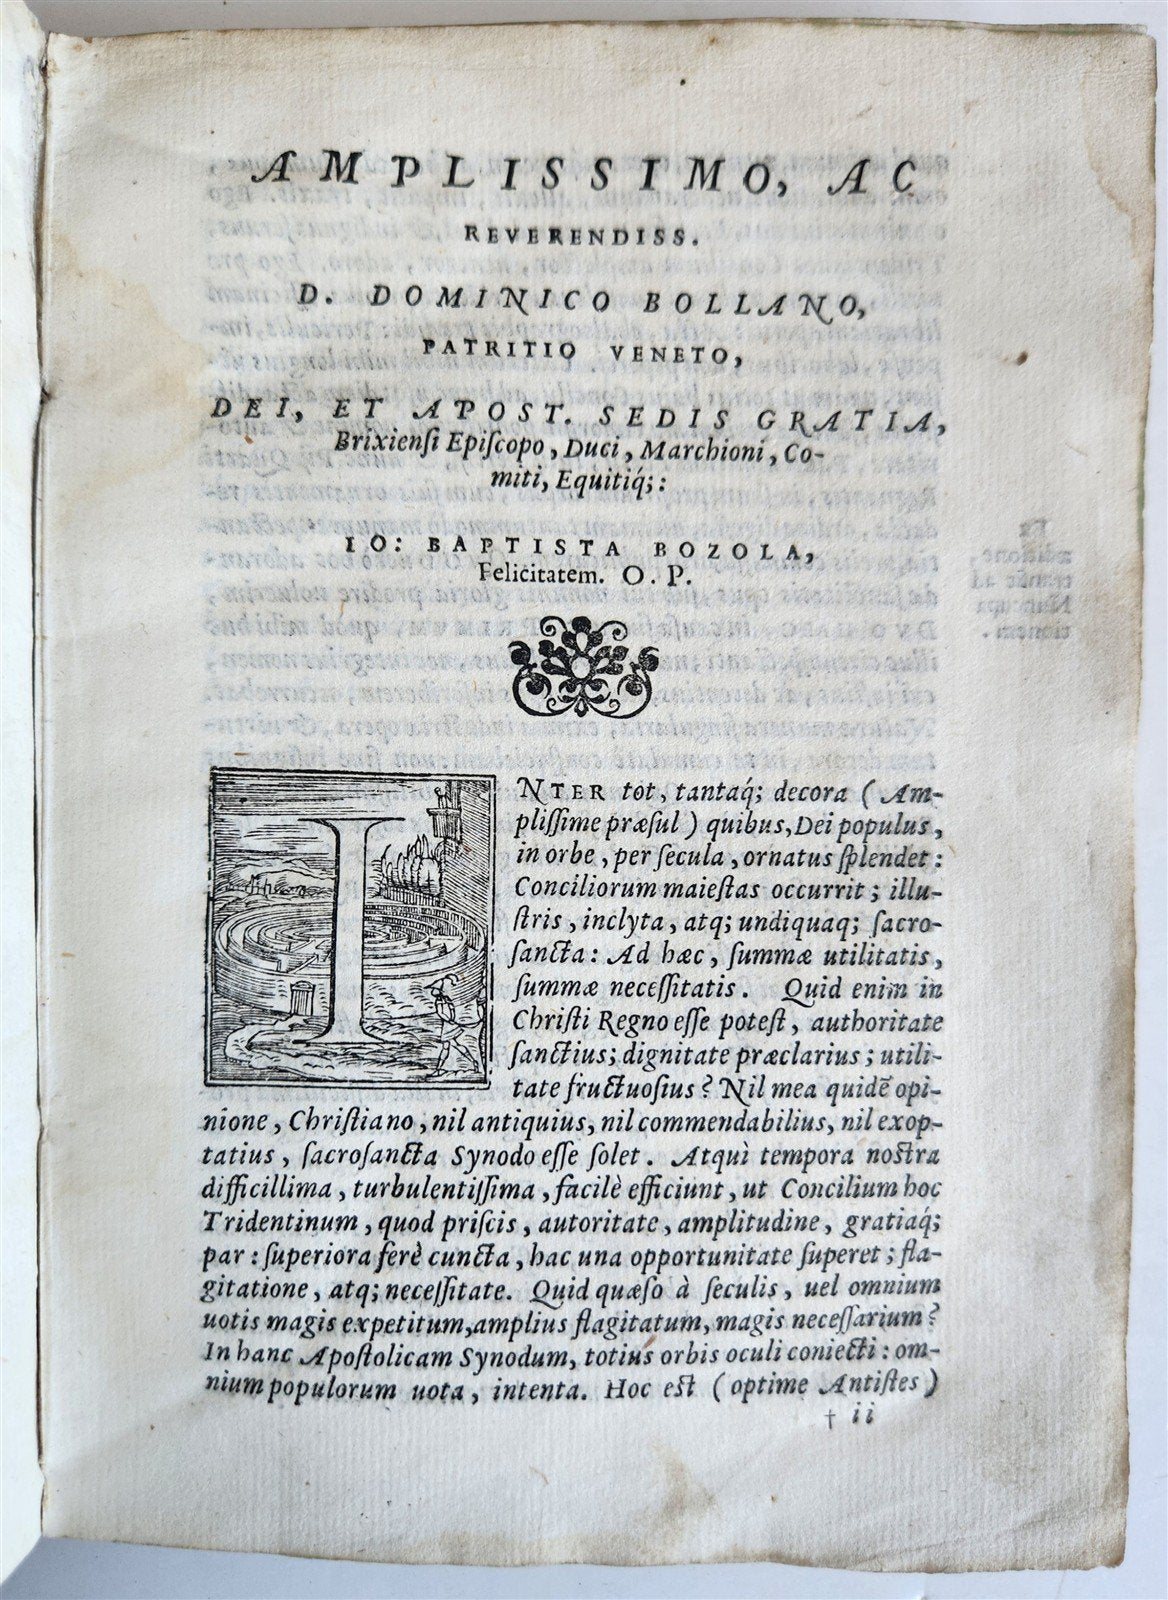 AMPLISSIMO, AC
REVERENDISS.
D. DOMINICO BOLLANO,
PATRITIO VENETO,
DEI, ET APOST. SEDIS GRATIA,
Brixienſi Epiſcopo, Duci, Marchioni, Co-
miti, Equitiq́;:
IO: BAPTISTA BOZOLA,
Felicitatem. O. P.
INTER tot, tantaq́; decora ( Am-
pliſſime præſul ) quibus, Dei populus,
in orbe, per ſecula, ornatus ſplendet:
Conciliorum maieſtas occurrit; illu-
ſtris, inclyta, atq; undiquaq; ſacro-
ſancta: Ad hæc, ſummæ utilitatis,
ſummæ neceſſitatis. Quid enim in
Chriſti Regno eſſe poteſt, authoritate
ſanctius; dignitate præclarius; utili-
tate fructuoſius? Nil mea quidē opi-
nione, Chriſtiano, nil antiquius, nil commendabilius, nil exop-
tatius, ſacroſancta Synodo eſſe ſolet. Atquì tempora noſtra
difficillima, turbulentiſſima, facilè efficiunt, ut Concilium hoc
Tridentinum, quod priſcis, autoritate, amplitudine, gratiaq́;
par: ſuperiora ferè cuncta, hac una opportunitate ſuperet; fla-
gitatione, atq; neceſſitate. Quid quæſo à ſeculis, uel omnium
uotis magis expetitum, amplius flagitatum, magis neceſſarium?
In hanc Apoſtolicam Synodum, totius orbis oculi coniecti: om-
nium populorum uota, intenta. Hoc eſt ( optime Antiſtes )
† ii